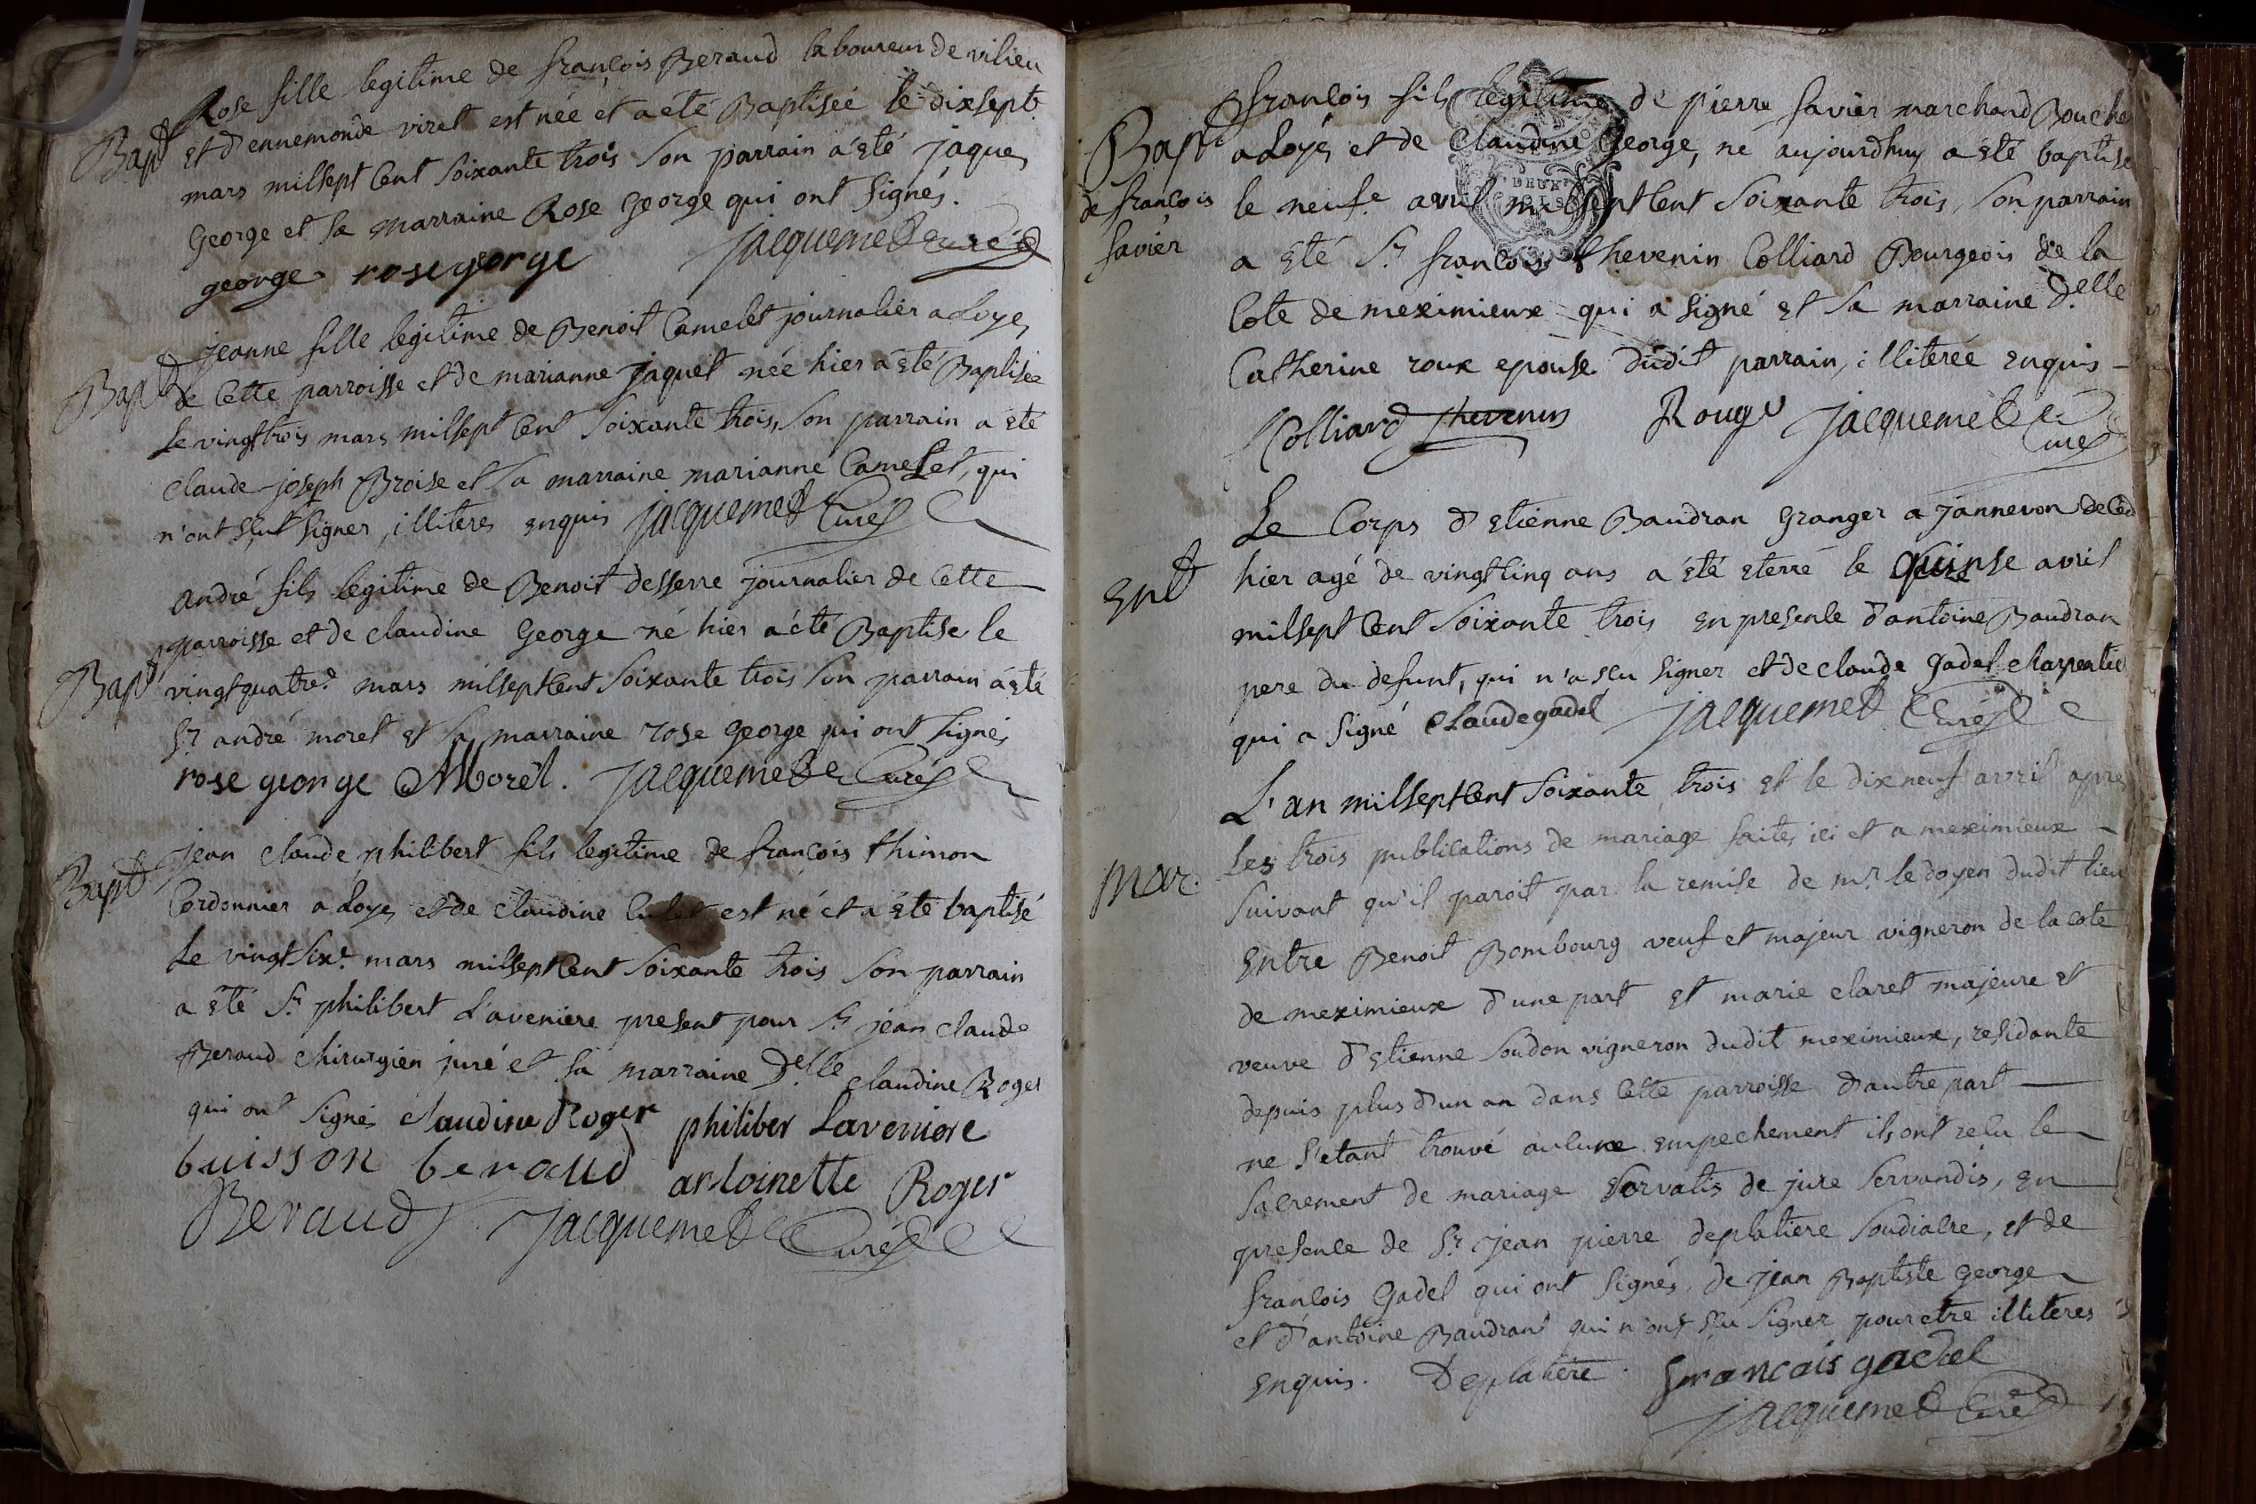 Rose fille legitime de françois Beraud laboureur de vilieu
Bapt et d'ennemonde viret est née et a été Baptisée le dixsept.
mars millsept Cent soixante trois son parrain a été jaques
George et sa marraine Rose George qui ont signés.
george rose george jacquemet Curé
jeanne fille legitime de Benoit Camelet journalier a Loyes
Bapt de Cette parroisse et de marianne jaquet née hier a été Baptisée
le vingttrois mars millsept Cent soixante trois, son parrain a été
claude joseph Broise et sa marraine marianne Camelet, qui
n'ont sçut signer, illiteres enquis jacquemet Curé
andré fils legitime de Benoit desserre journalier de Cette
parroisse et de claudine George né hier a été Baptisé le
Bapt vingtquatre.e mars millseptCent soixante trois son parrain a été
Sr andré moret et sa marraine rose George qui ont signés
rose george AMorel. jacquemet Curé
Bapt jean claude philibert fils legitime de françois thimon
Cordonnier a Loyes et de claudine est né et a été baptisé
le vingtsix.e mars millseptCent soixante trois son parrain
a été Sr philibert Laveniere present pour Sr jean claude
Beraud chirurgien juré et sa marraine Delle claudine Roger
qui ont signés claudine Roger philiber Laveniere
buisson beraud antoinette Roger
Beraud jacquemet Curé
françois fils legitime de pierre favier marchand Bouche
Bapt a Loyes et de Claudine George, né aujourdhuy a été baptisé
de francois le neuf.e avril millseptCent soixante trois, son parrain
favier
a été Sr francois thevenin Colliard Bourgeois de la
Cote de meximieux qui a signé et sa marraine Delle
Catherine roux epouse dudit parrain, illiterée enquis
Colliard thevenin Rouge jacquemet Curé
Le Corps d'Etienne Baudran Granger a janneron deCed
Ent hier agé de vingtCinq ans a été eterré le quinse avril
millsept Cent soixante trois en presenCe d'antoine Baudran
pere du defunt, qui n'a sçu signer et de claude gadel charpentie
qui a signé Claude gadel jacquemet Curé
L'an millseptCent soixante trois et le dixneuf avril apre
mar. les trois publications de mariage faites ici et a meximieux
suivant qu'il paroit par la remise de mr le doyen dudit lieu
entre Benoit Bombourg veuf et majeur vigneron de la cote
de meximieux d'une part et marie claret majeure et
veuve d'Etienne soudon vigneron dudit meximieux, residante
depuis plus d'un an dans Cette parroisse d'autre part
ne s'etant trouvé auCune empechement ils ont reCu le
saCrement de mariage servatis de jure servandis, en
presenCe de Sr jean pierre deplatiere soudiaCre, et de
françois Gadel qui ont signés, de jean Baptiste George
et d'antoine Baudran qui n'ont sçu signer pour etre illiteres
enquis. Deplatiere francais gadel
jacquemet Curé